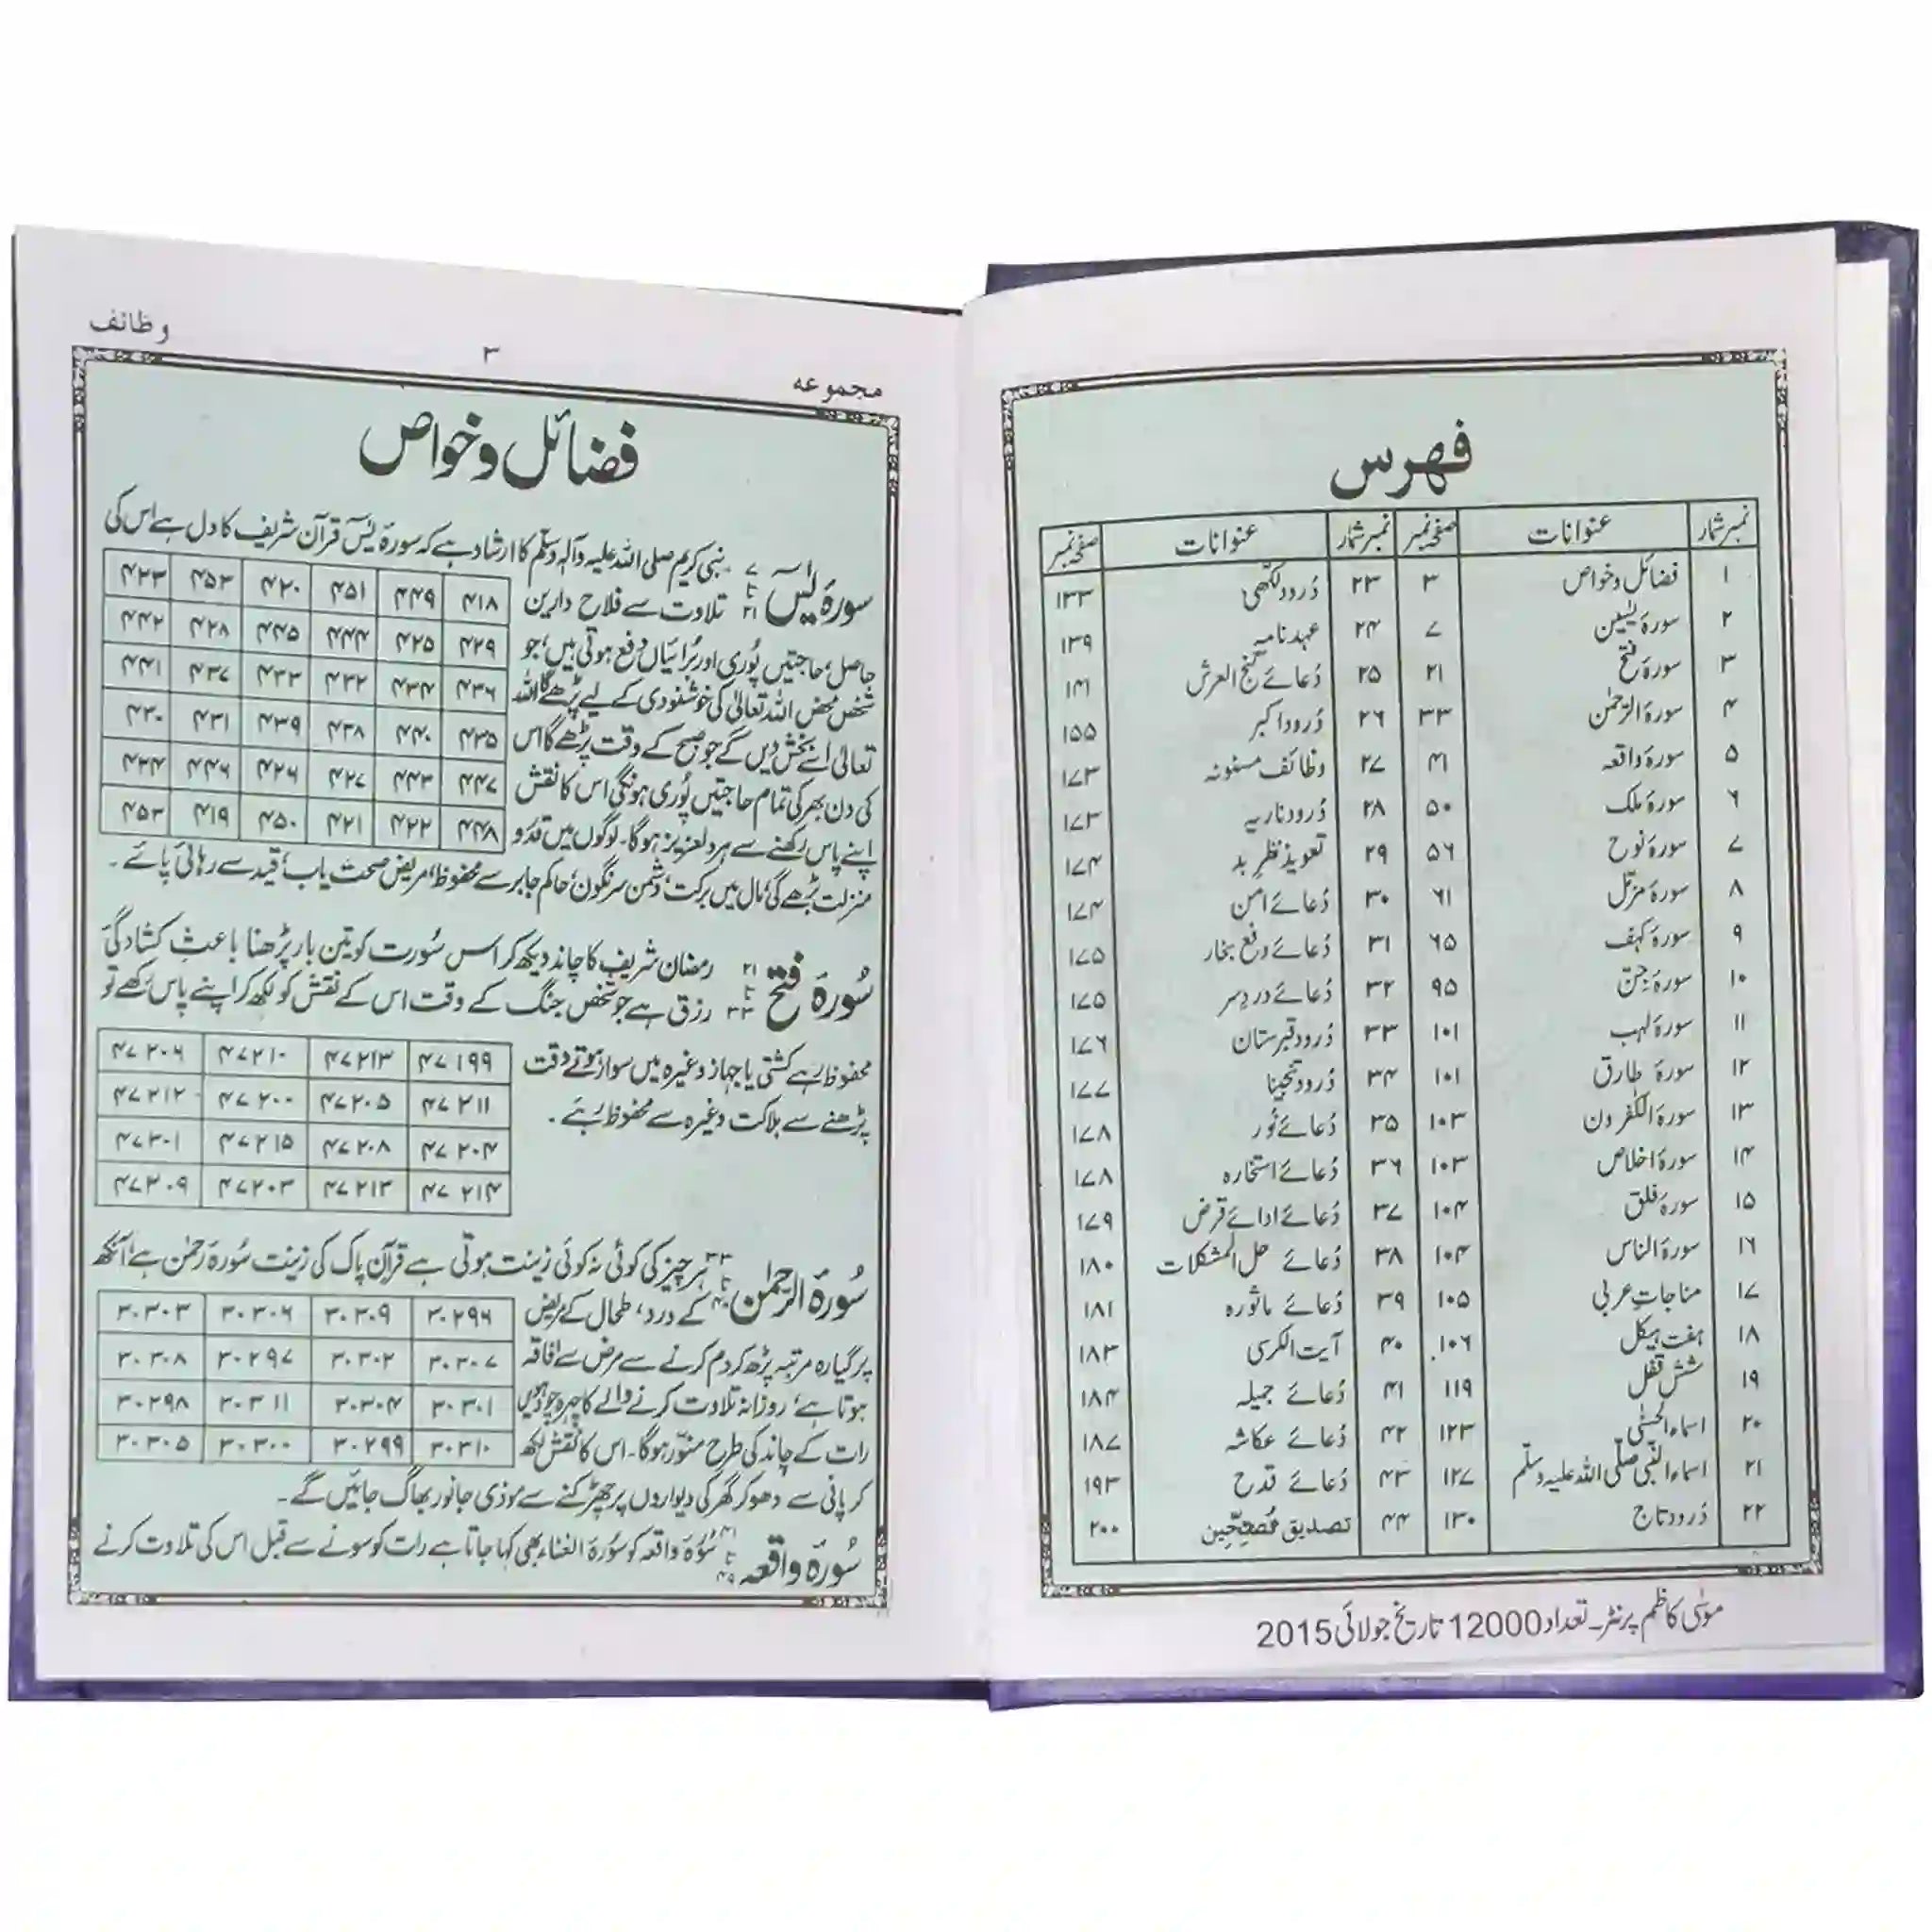 فہرس
نمبر شمار عنوانات صفحہ نمبر نمبر شمار عنوانات صفحہ نمبر
۱ فضائل و خواص ۳ ۲۳ دُرود لکھی ۱۳۳
۲ سورۂ یٰسین ۷ ۲۴ عہد نامہ ۱۳۹
۳ سورۂ فتح ۲۱ ۲۵ دُعائے گنج العرش ۱۴۱
۴ سورۃ الرحمٰن ۳۳ ۲۶ دُرود اکبر ۱۵۵
۵ سورۂ واقعہ ۴۱ ۲۷ وظائف مسنونہ ۱۷۳
۶ سورۂ ملک ۵۰ ۲۸ دُرود ناریہ ۱۷۳
۷ سورۂ نوح ۵۶ ۲۹ تعویذ نظرِ بد ۱۷۴
۸ سورۂ مزمّل ۶۱ ۳۰ دُعائے امن ۱۷۴
۹ سورۂ کہف ۶۵ ۳۱ دُعائے دفع بخار ۱۷۵
۱۰ سورۂ جِنّ ۹۵ ۳۲ دُعائے دردِ سر ۱۷۵
۱۱ سورۂ لہب ۱۰۱ ۳۳ دُرود قبرستان ۱۷۶
۱۲ سورۂ طارق ۱۰۱ ۳۴ دُرود تنجینا ۱۷۷
۱۳ سورۃ الکٰفرون ۱۰۳ ۳۵ دُعائے نُور ۱۷۸
۱۴ سورۂ اخلاص ۱۰۳ ۳۶ دُعائے استخارہ ۱۷۸
۱۵ سورۂ فلق ۱۰۴ ۳۷ دُعائے ادائے قرض ۱۷۹
۱۶ سورۃ الناس ۱۰۴ ۳۸ دُعائے حل المشکلات ۱۸۰
۱۷ مناجاتِ عربی ۱۰۵ ۳۹ دُعائے ماثورہ ۱۸۱
۱۸ ہفت ہیکل ۱۰۶ ۴۰ آیت الکرسی ۱۸۳
۱۹ شش قفل ۱۱۹ ۴۱ دُعائے جمیلہ ۱۸۴
۲۰ اسماء الحسنٰی ۱۲۳ ۴۲ دُعائے عکاشہ ۱۸۷
۲۱ اسماء النّبی صلّی اللہ علیہ وسلّم ۱۲۷ ۴۳ دُعائے قدح ۱۹۳
۲۲ دُرود تاج ۱۳۰ ۴۴ تصدیق مُصحّحین ۲۰۰
موسٰی کاظم پرنٹر۔ تعداد 12000 تاریخ جولائی 2015
مجموعہ ۳ وظائف
فضائل و خواص
سورۂ یٰسٓ ۷ تا ۲۱ نبی کریم صلی اللہ علیہ وآلہٖ وسلّم کا ارشاد ہے کہ سورۂ یٰسٓ قرآن شریف کا دل ہے اس کی
تلاوت سے فلاح دارین
حاصل، حاجتیں پُوری اور بُرائیاں دفع ہوتی ہیں، جو
شخص محض اللہ تعالٰی کی خوشنودی کے لیے پڑھے گا اللہ
تعالٰی اسے بخش دیں گے جو صبح کے وقت پڑھے گا اس
کی دن بھر کی تمام حاجتیں پُوری ہونگی اس کا نقش
اپنے پاس رکھنے سے ہر دلعزیز ہوگا۔ لوگوں میں قدر و
منزلت بڑھے گی، مال میں برکت، دشمن سرنگوں، حاکم جابر سے محفوظ، مریض صحت یاب، قید سے رہائی پائے۔
۴۱۸ ۴۴۹ ۴۵۱ ۴۲۰ ۴۵۲ ۴۲۳
۴۲۹ ۴۲۵ ۴۴۴ ۴۴۵ ۴۲۸ ۴۴۲
۴۳۶ ۴۳۴ ۴۳۲ ۴۳۳ ۴۳۷ ۴۴۱
۴۳۵ ۴۴۰ ۴۳۸ ۴۳۹ ۴۳۱ ۴۳۰
۴۴۷ ۴۴۳ ۴۲۷ ۴۲۶ ۴۴۶ ۴۲۴
۴۴۸ ۴۲۲ ۴۲۱ ۴۵۰ ۴۱۹ ۴۵۳
سُورۂ فتح ۲۱ تا ۳۳ رمضان شریف کا چاند دیکھ کر اس سُورت کو تین بار پڑھنا باعثِ کشادگیٔ
رزق ہے جو شخص جنگ کے وقت اس کے نقش کو لکھ کر اپنے پاس رکھے تو
محفوظ رہے کشتی یا جہاز وغیرہ میں سوار ہوتے وقت
پڑھنے سے ہلاکت وغیرہ سے محفوظ رہے۔
۴۷۱۹۹ ۴۷۲۱۳ ۴۷۲۱۰ ۴۷۲۰۶
۴۷۲۱۱ ۴۷۲۰۵ ۴۷۲۰۰ ۴۷۲۱۲
۴۷۲۰۴ ۴۷۲۰۸ ۴۷۲۱۵ ۴۷۳۰۱
۴۷۲۱۴ ۴۷۲۱۳ ۴۷۲۰۳ ۴۷۲۰۹
سُورۃ الرحمٰن ۳۳ تا ۴۰ ہر چیز کی کوئی نہ کوئی زینت ہوتی ہے قرآن پاک کی زینت سُورۂ رحمٰن ہے، آنکھ
کے درد، طحال کے مریض
پر گیارہ مرتبہ پڑھ کر دم کرنے سے مرض سے افاقہ
ہوتا ہے، روزانہ تلاوت کرنے والے کا چہرہ چودہویں
رات کے چاند کی طرح منوّر ہوگا۔ اس کا نقش لکھ
کر پانی سے دھو کر گھر کی دیواروں پر چھڑکنے سے موذی جانور بھاگ جائیں گے۔
۳۰۲۹۶ ۳۰۳۰۹ ۳۰۳۰۶ ۳۰۳۰۳
۳۰۳۰۷ ۳۰۳۰۲ ۳۰۲۹۷ ۳۰۳۰۸
۳۰۳۰۱ ۳۰۳۰۴ ۳۰۳۱۱ ۳۰۲۹۸
۳۰۳۱۰ ۳۰۲۹۹ ۳۰۳۰۰ ۳۰۳۰۵
سُورۂ واقعہ ۴۱ تا ۴۹ سُورۂ واقعہ کو سُورۃ الغناء بھی کہا جاتا ہے رات کو سونے سے قبل اس کی تلاوت کرنے